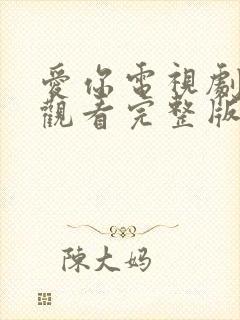 愛你電視劇
觀看完整版
陳大妈